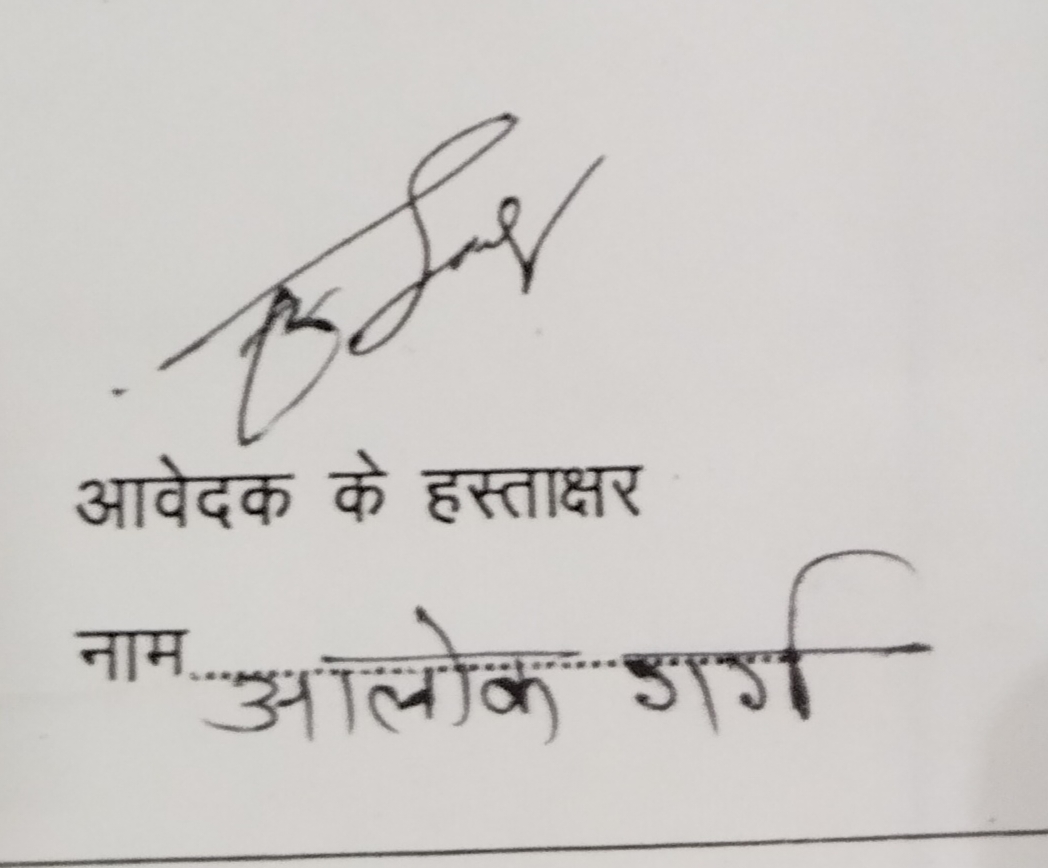 आवेदक के हस्ताक्षर
नाम आलोक गर्ग